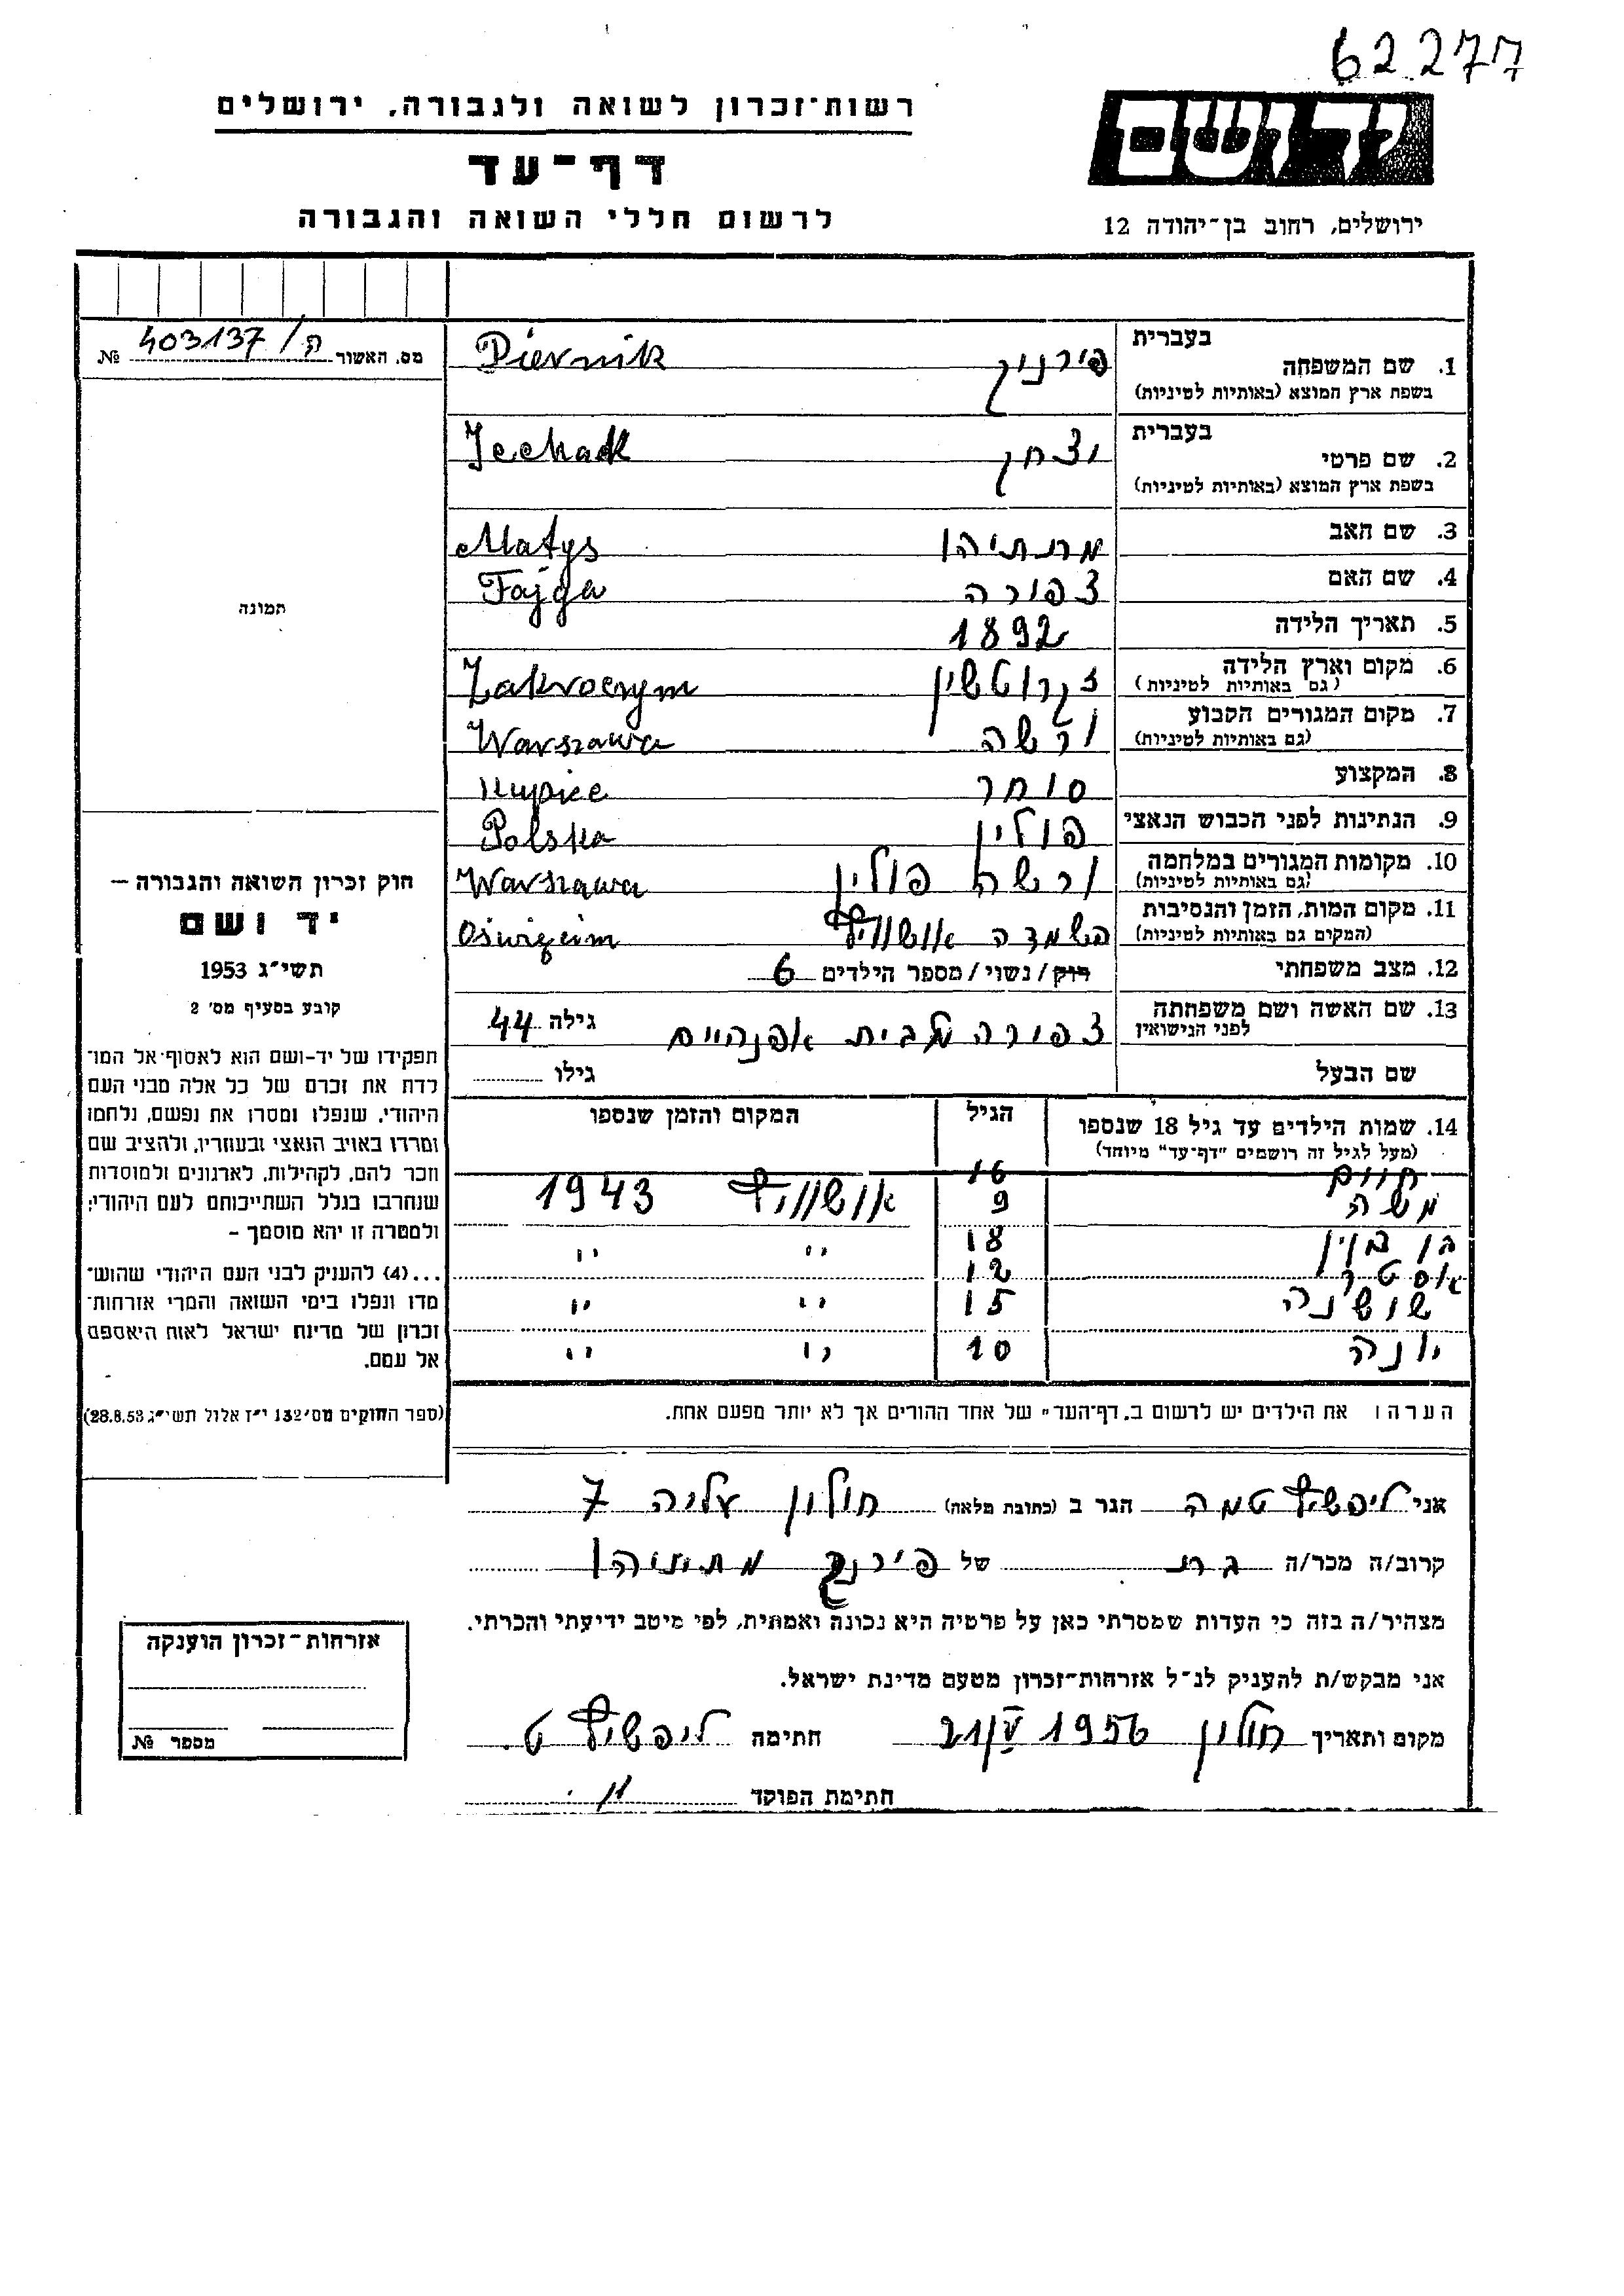 62277
רשות־זכרון לשואה ולגבורה, ירושלים
יד ושם
דף־עד
לרשום חללי השואה והגבורה
ירושלים, רחוב בן־יהודה 12
מס. האשור ה/403137 №
1. שם המשפחה בעברית פירניק Piernik
בשפת ארץ המוצא (באותיות לטיניות)
2. שם פרטי בעברית יצחק Icchak
בשפת ארץ המוצא (באותיות לטיניות)
3. שם האב מתתיהו Matys
4. שם האם צפורה Fajga
5. תאריך הלידה 1892
6. מקום וארץ הלידה זקרוטשין
(גם באותיות לטיניות)
7. מקום המגורים הקבוע ורשה Warszawa
(גם באותיות לטיניות)
8. המקצוע סוחר
9. הנתינות לפני הכבוש הנאצי פולין Polska
10. מקומות המגורים במלחמה ורשה פולין Warszawa
(גם באותיות לטיניות)
11. מקום המות, הזמן והנסיבות השמדה אושוויץ
(המקום גם באותיות לטיניות)
12. מצב משפחתי רווק/נשוי/מספר הילדים 6
13. שם האשה ושם משפחתה צפורה מבית אפנהיים גילה 44
לפני הנישואין
שם הבעל גילו
14. שמות הילדים עד גיל 18 שנספו הגיל המקום והזמן שנספו
(מעל לגיל זה רושמים "דף־עד" מיוחד)
חיים 16
משה 9 אושוויץ 1943
18 " "
אסטר 12
שושנה 15 " "
יונה 10 " "
הערה: את הילדים יש לרשום ב"דף־העד" של אחד ההורים אך לא יותר מפעם אחת.
תמונה
חוק זכרון השואה והגבורה –
יד ושם
תשי"ג 1953
קובע בסעיף מס' 2
תפקידו של יד-ושם הוא לאסוף אל המו־
לדת את זכרם של כל אלה מבני העם
היהודי, שנפלו ומסרו את נפשם, נלחמו
ומרדו באויב הנאצי ובעוזריו, ולהציב שם
וזכר להם, לקהילות, לארגונים ולמוסדות
שנחרבו בגלל השתייכותם לעם היהודי;
ולמטרה זו יהא מוסמך –
...(4) להעניק לבני העם היהודי שהוש־
מדו ונפלו בימי השואה והמרי אזרחות־
זכרון של מדינת ישראל לאות היאספם
אל עמם.
(ספר החוקים מס' 132 י"ז אלול תשי"ג 28.8.53)
אני ליפשיץ טמה הגר ב (כתובת מלאה) חולון עליה 7
קרוב/ה מכר/ה בת של פירניק מתתיהו
מצהיר/ה בזה כי העדות שמסרתי כאן על פרטיה היא נכונה ואמתית, לפי מיטב ידיעתי והכרתי.
אני מבקש/ת להעניק לנ"ל אזרחות־זכרון מטעם מדינת ישראל.
מקום ותאריך חולון 21/V 1956 חתימה ליפשיץ ט.
חתימת הפוקד
אזרחות־זכרון הוענקה
מספר №